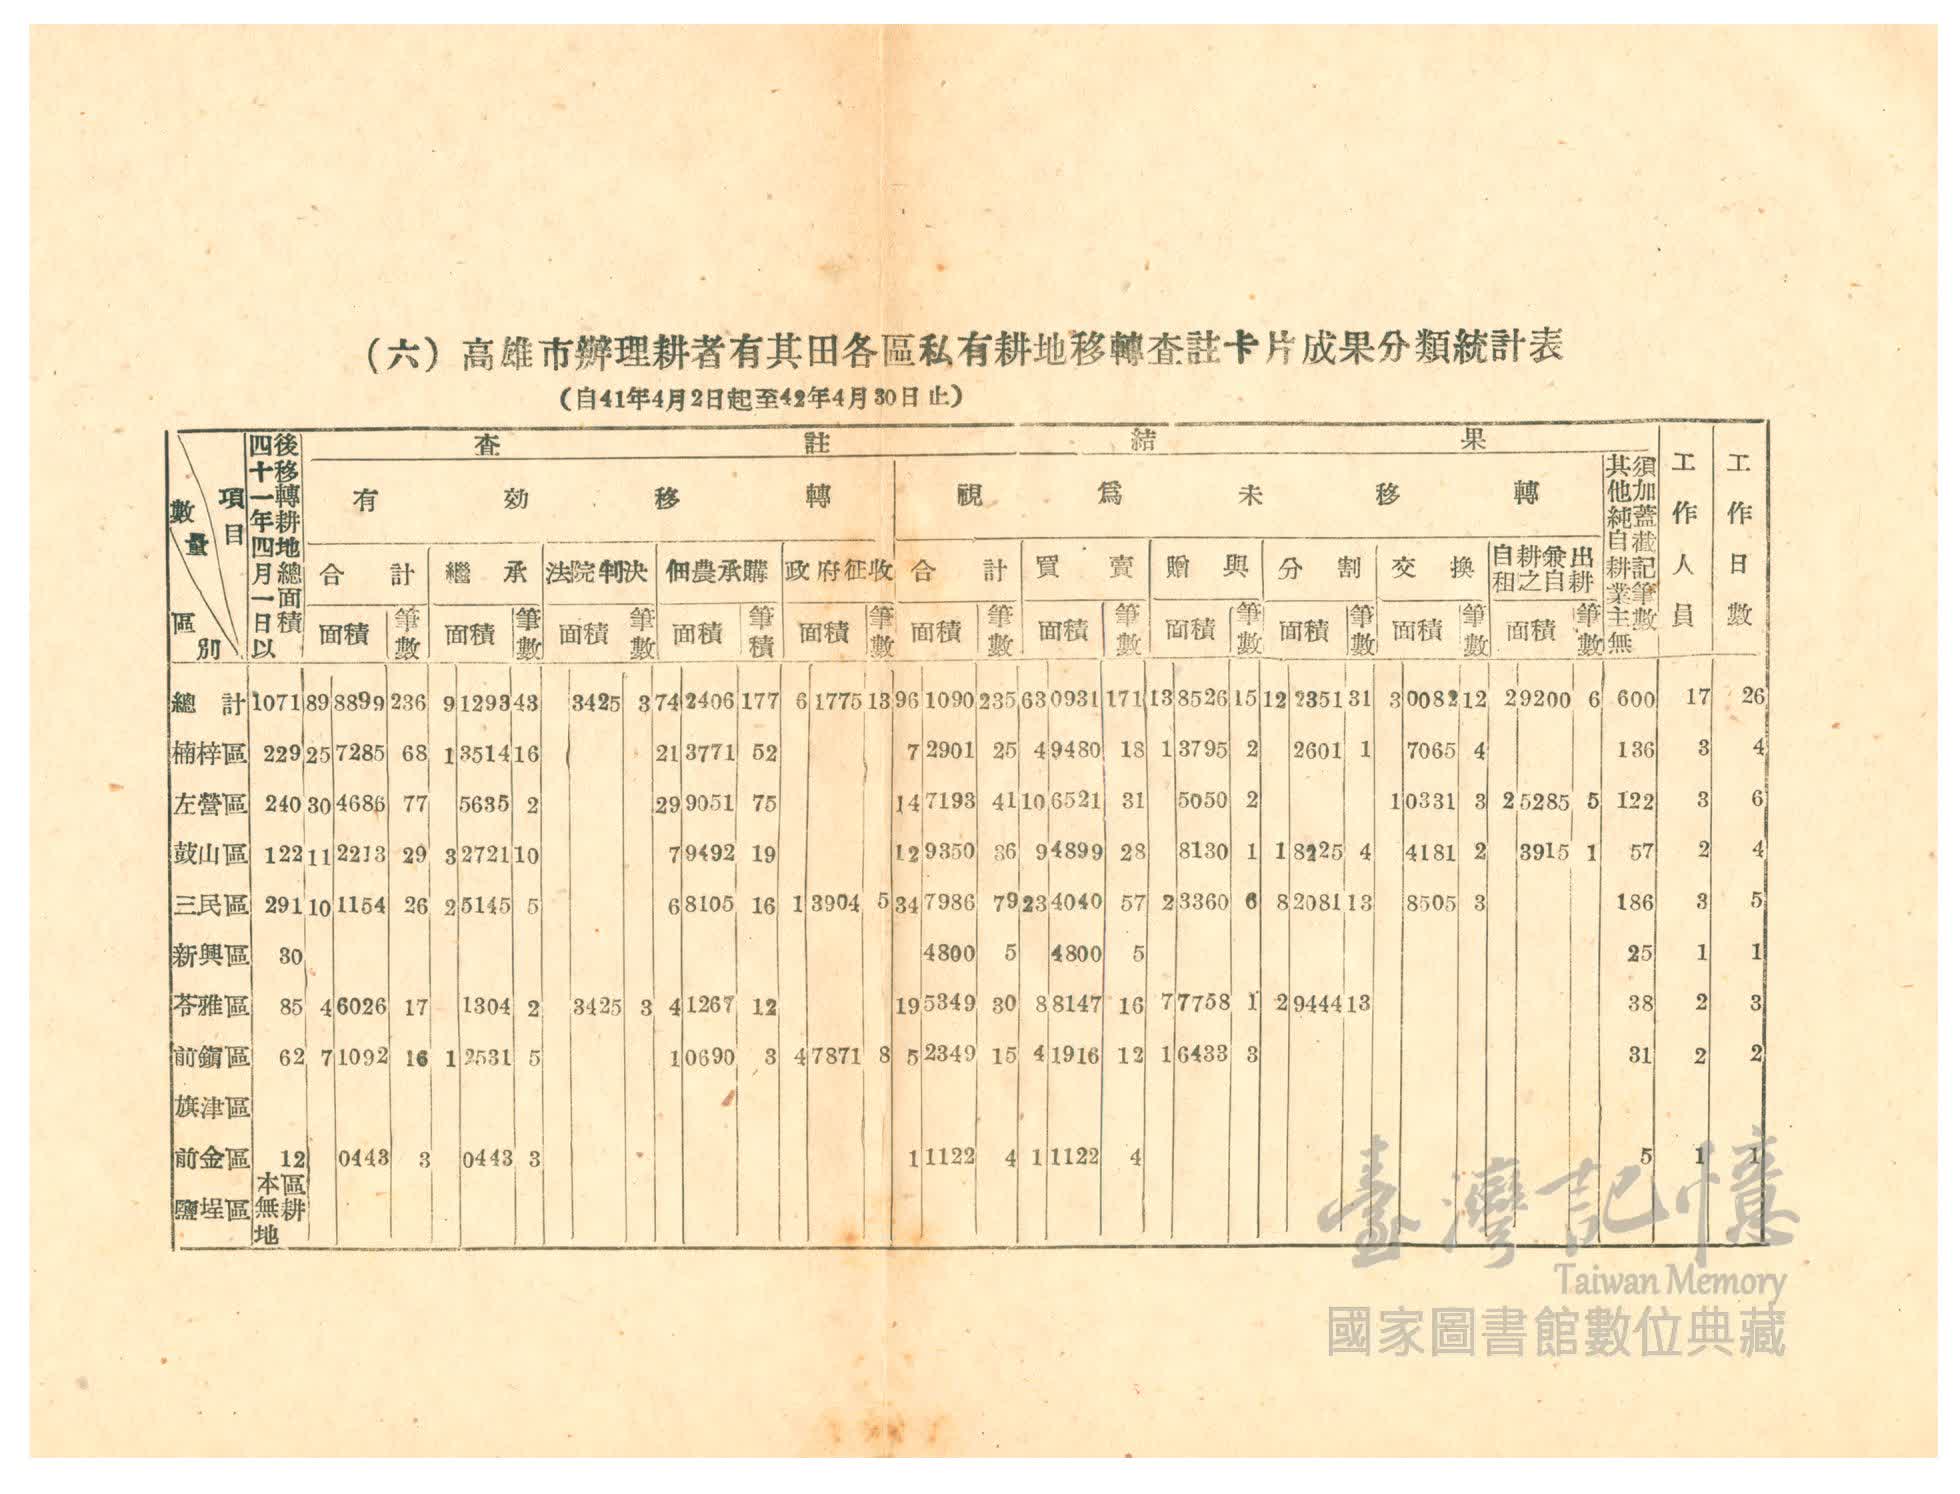 (六)高雄市辦理耕者有其田各區私有耕地移轉查註卡片成果分類統計表
(自41年4月2日起至42年4月30日止)
項目 數量 區別
四十一年四月一日以後移轉耕地總面積
查註結果
有効移轉 視爲未移轉
其他純自耕業主無須加蓋截記筆數
工作人員 工作日數
合計 繼承 法院判決 佃農承購 政府征收 合計 買賣 贈與 分割 交換 自耕兼出租之自耕
面積 筆數 面積 筆數 面積 筆數 面積 筆積 面積 筆數 面積 筆數 面積 筆數 面積 筆數 面積 筆數 面積 筆數 面積 筆數
總計 1071 89 8899 236 9 1293 43 3425 3 74 2406 177 6 1775 13 96 1090 235 63 0931 171 13 8526 15 12 2351 31 3 0082 12 2 9200 6 600 17 26
楠梓區 229 25 7285 68 1 3514 16 21 3771 52 7 2901 25 4 9480 18 1 3795 2 2601 1 7065 4 136 3 4
左營區 240 30 4686 77 5635 2 29 9051 75 14 7193 41 10 6521 31 5050 2 1 0331 3 2 5285 5 122 3 6
鼓山區 122 11 2213 29 3 2721 10 7 9492 19 12 9350 36 9 4899 28 8130 1 1 8225 4 4181 2 3915 1 57 2 4
三民區 291 10 1154 26 2 5145 5 6 8105 16 1 3904 5 34 7986 79 23 4040 57 2 3360 6 8 2081 13 8505 3 186 3 5
新興區 30 4800 5 4800 5 25 1 1
苓雅區 85 4 6026 17 1304 2 3425 3 4 1267 12 19 5349 30 8 8147 16 7 7758 1 2 9444 13 38 2 3
前鎭區 62 7 1092 16 1 2531 5 1 0690 3 4 7871 8 5 2349 15 4 1916 12 1 6433 3 31 2 2
旗津區
前金區 12 0443 3 0443 3 1 1122 4 1 1122 4 5 1 1
鹽埕區 本區無耕地
臺灣記憶
Taiwan Memory
國家圖書館數位典藏